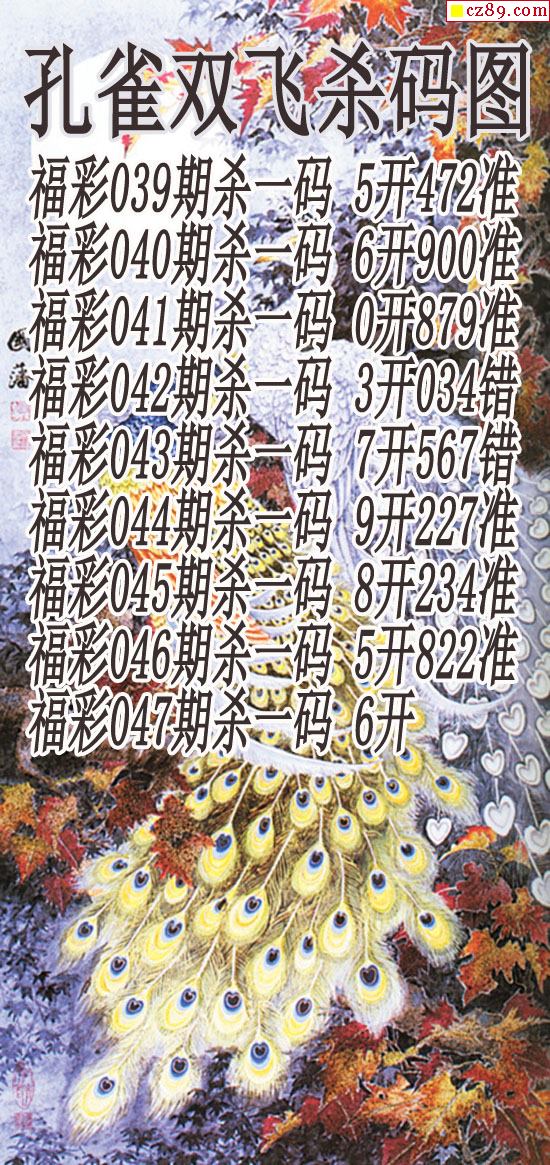 cz89.com
孔雀双飞杀码图
福彩039期杀一码 5开472准
福彩040期杀一码 6开900准
福彩041期杀一码 0开879准
福彩042期杀一码 3开034错
福彩043期杀一码 7开567错
福彩044期杀一码 9开227准
福彩045期杀一码 8开234准
福彩046期杀一码 5开822准
福彩047期杀一码 6开